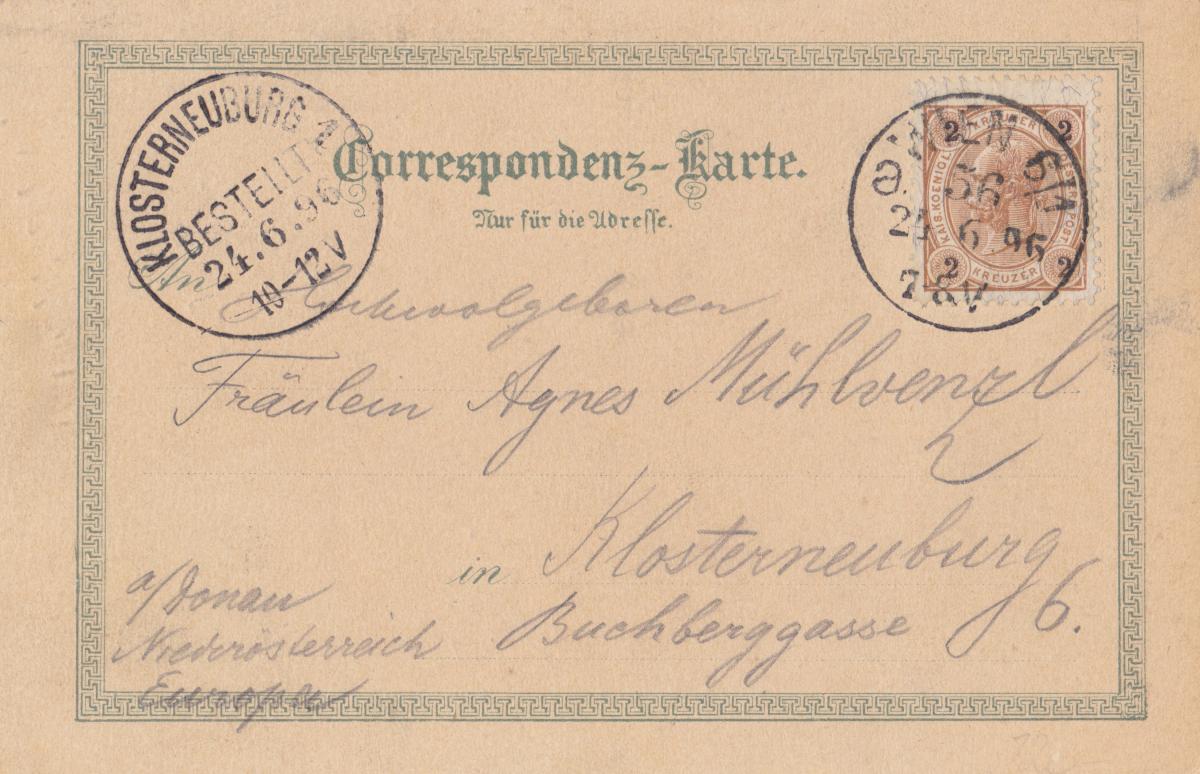 KLOSTERNEUBURG 1
BESTELLT
24.6.96
10-12V
Correspondenz-Karte.
Nur für die Adresse.
WIEN
56
6 96
7.8.V
2 2
KREUZER
2 2
KAIS. KOENIGL. POST.
An Hochwolgeboren
Fräulein Agnes Mühlvenzl
in Klosterneuburg
Buchberggasse 6.
a/Donau
Niederösterreich
Europa